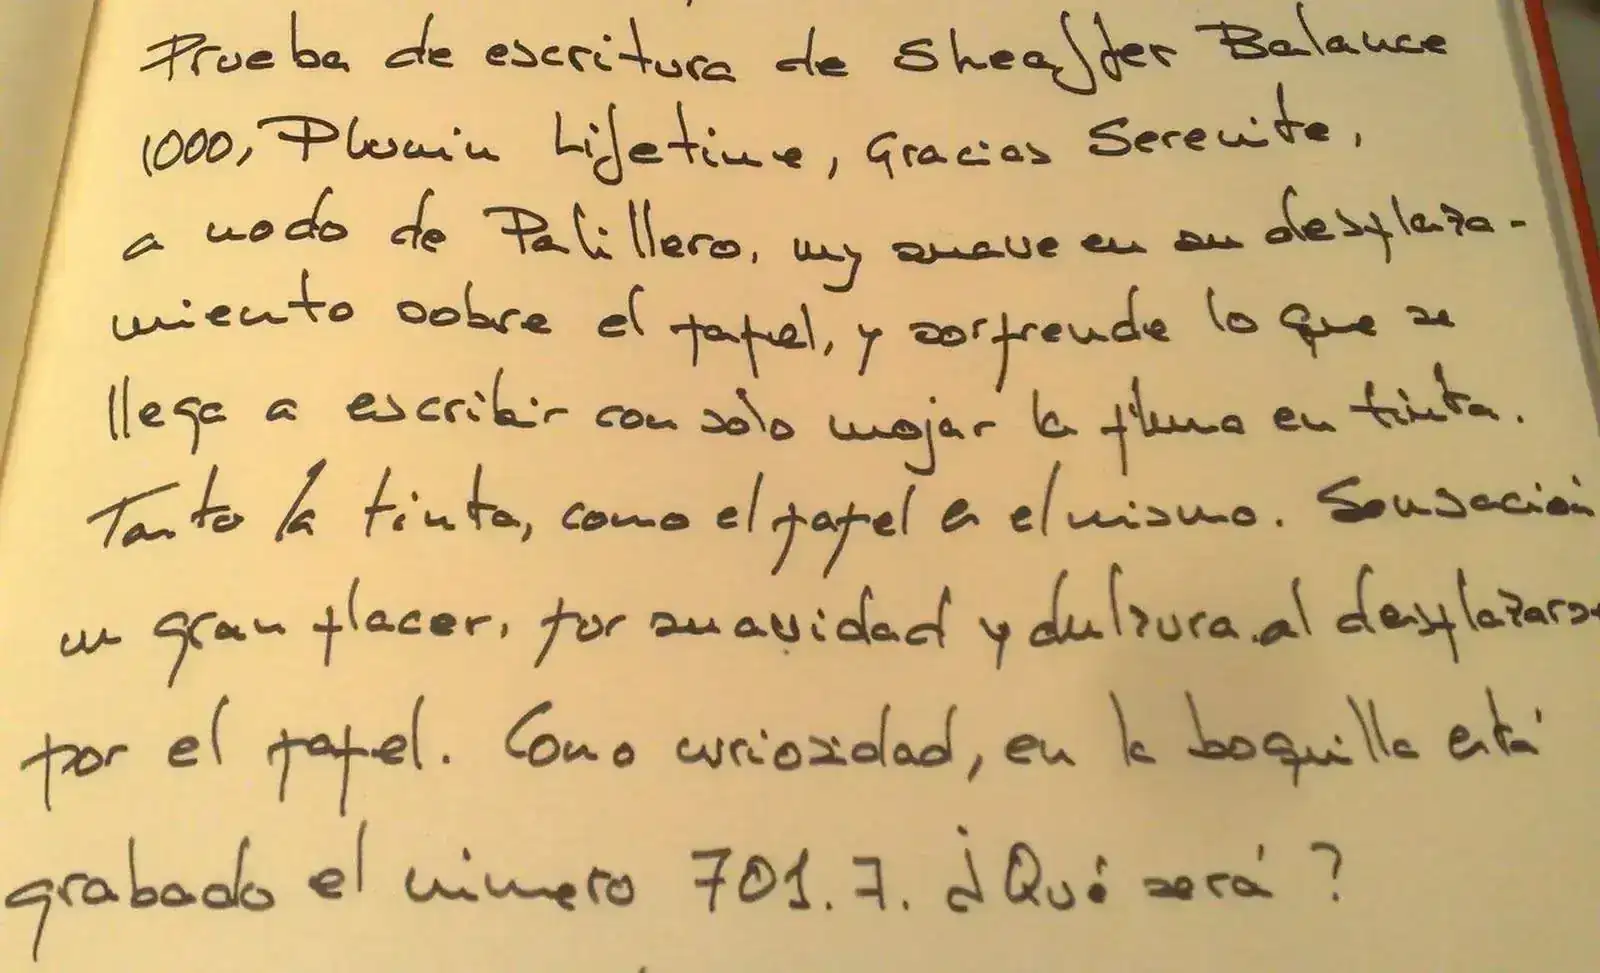 Prueba de escritura de Sheaffer Balance
1000, Plumin Lifetime, Gracias Serenite,
a modo de Palillero, muy suave en su desplaza-
miento sobre el papel, y sorprende lo que se
llega a escribir con sólo mojar la pluma en tinta.
Tanto la tinta, como el papel es el mismo. Sensación
un gran placer, por suavidad y dulzura al desplazarse
por el papel. Como curiosidad, en la boquilla está
grabado el número 701.7. ¿Qué será?